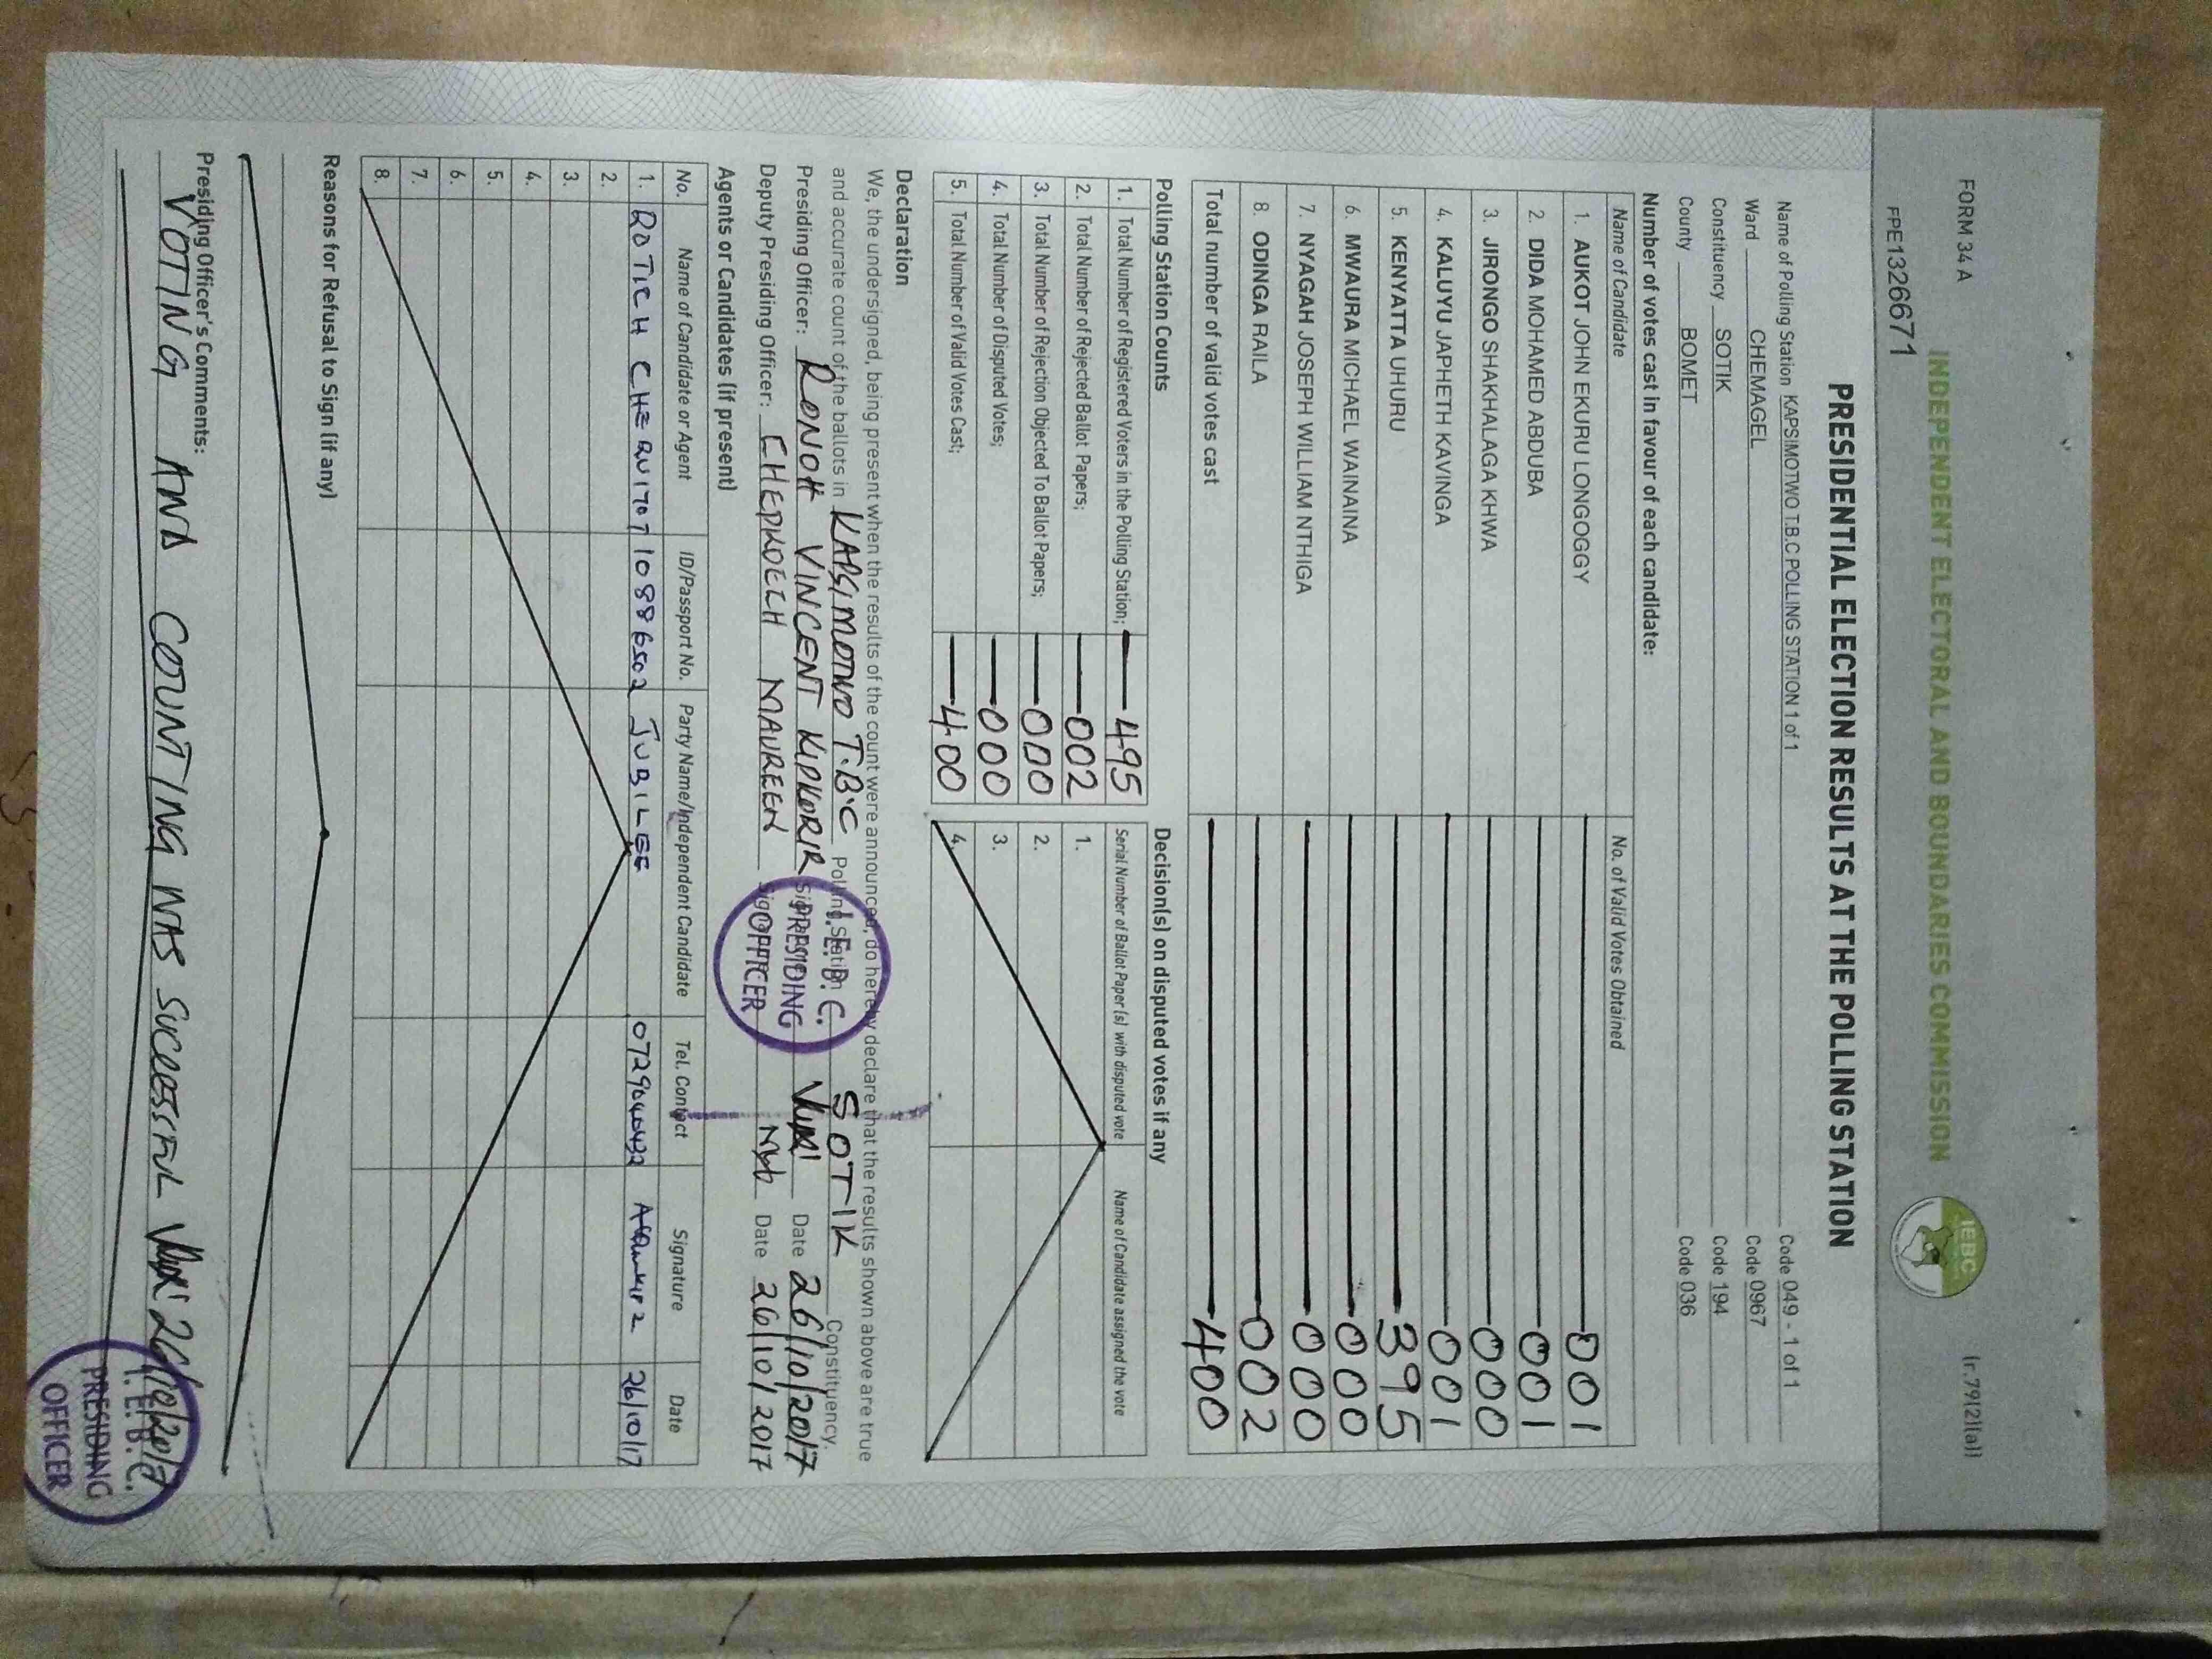 FORM 34 A
(r.79(2)(a))
INDEPENDENT ELECTORAL AND BOUNDARIES COMMISSION
IEBC
FPE1326671
PRESIDENTIAL ELECTION RESULTS AT THE POLLING STATION
Name of Polling Station KAPSIMOTWO T.B.C POLLING STATION 1 of 1 Code 049 - 1 of 1
Ward CHEMAGEL Code 0967
Constituency SOTIK Code 194
County BOMET Code 036
Number of votes cast in favour of each candidate:
Name of Candidate No. of Valid Votes Obtained
1. AUKOT JOHN EKURU LONGOGGY 001
2. DIDA MOHAMED ABDUBA 001
3. JIRONGO SHAKHALAGA KHWA 000
4. KALUYU JAPHETH KAVINGA 001
5. KENYATTA UHURU 395
6. MWAURA MICHAEL WAINAINA 000
7. NYAGAH JOSEPH WILLIAM NTHIGA 000
8. ODINGA RAILA 002
Total number of valid votes cast 400
Polling Station Counts
1. Total Number of Registered Voters in the Polling Station; 495
2. Total Number of Rejected Ballot Papers; 002
3. Total Number of Rejection Objected To Ballot Papers; 000
4. Total Number of Disputed Votes; 000
5. Total Number of Valid Votes Cast; 400
Decision(s) on disputed votes if any
Serial Number of Ballot Paper(s) with disputed vote Name of Candidate assigned the vote
1.
2.
3.
4.
Declaration
We, the undersigned, being present when the results of the count were announced, do hereby declare that the results shown above are true
and accurate count of the ballots in KAPSIMOTWO T.B.C Polling Station SOTIK Constituency.
Presiding Officer: RONOH VINCENT KIPKORIR Signature Date 26/10/2017
Deputy Presiding Officer: CHEPKOECH MAUREEN Signature Date 26/10/2017
I.E.B.C.
PRESIDING
OFFICER
Agents or Candidates (if present)
No. Name of Candidate or Agent ID/Passport No. Party Name/Independent Candidate Tel. Contact Signature Date
1. ROTICH CHERUIYOT 10886502 JUBILEE 26/10/17
2.
3.
4.
5.
6.
7.
8.
Reasons for Refusal to Sign (if any)
Presiding Officer's Comments:
VOTING AND COUNTING WAS SUCESSFUL 26/10/2017
I.E.B.C.
PRESIDING
OFFICER